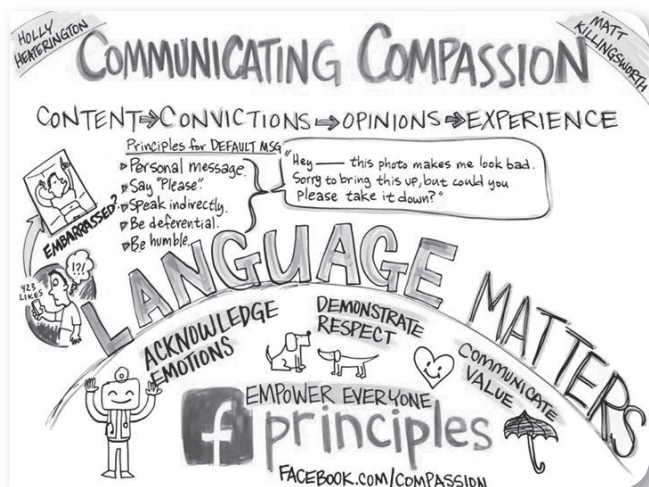 HOLLY
HEATERINGTON
COMMUNICATING COMPASSION
MATT
KILLINGSWORTH
CONTENT⇒CONVICTIONS⇒OPINIONS⇒EXPERIENCE
Principles for DEFAULT MSG
▷Personal message.
▷Say "Please".
▷Speak indirectly.
▷Be deferential.
▷Be humble.
"Hey — this photo makes me look bad.
Sorry to bring this up, but could you
Please take it down?"
EMBARRASSED?
423
LIKES
!?!
LANGUAGE MATTERS
ACKNOWLEDGE
EMOTIONS
DEMONSTRATE
RESPECT
COMMUNICATE
VALUE
EMPOWER EVERYONE
f principles
FACEBOOK.COM/COMPASSION